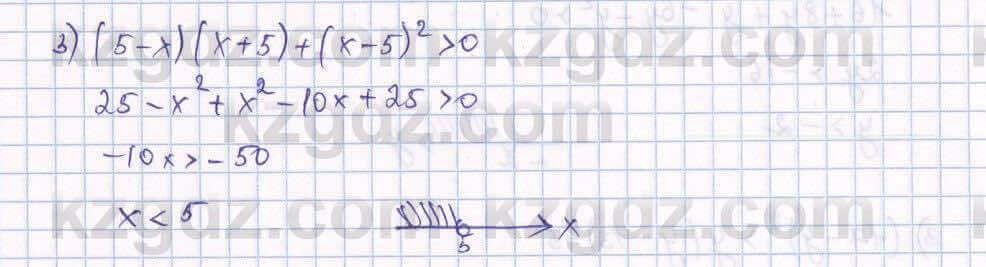 3) (5-x)(x+5)+(x-5)²>0
25-x²+x²-10x+25>0
-10x>-50
x<5
5 x
kzgdz.com
kzgdz.com
kzgdz.com
kzgdz.com
kzgdz.com